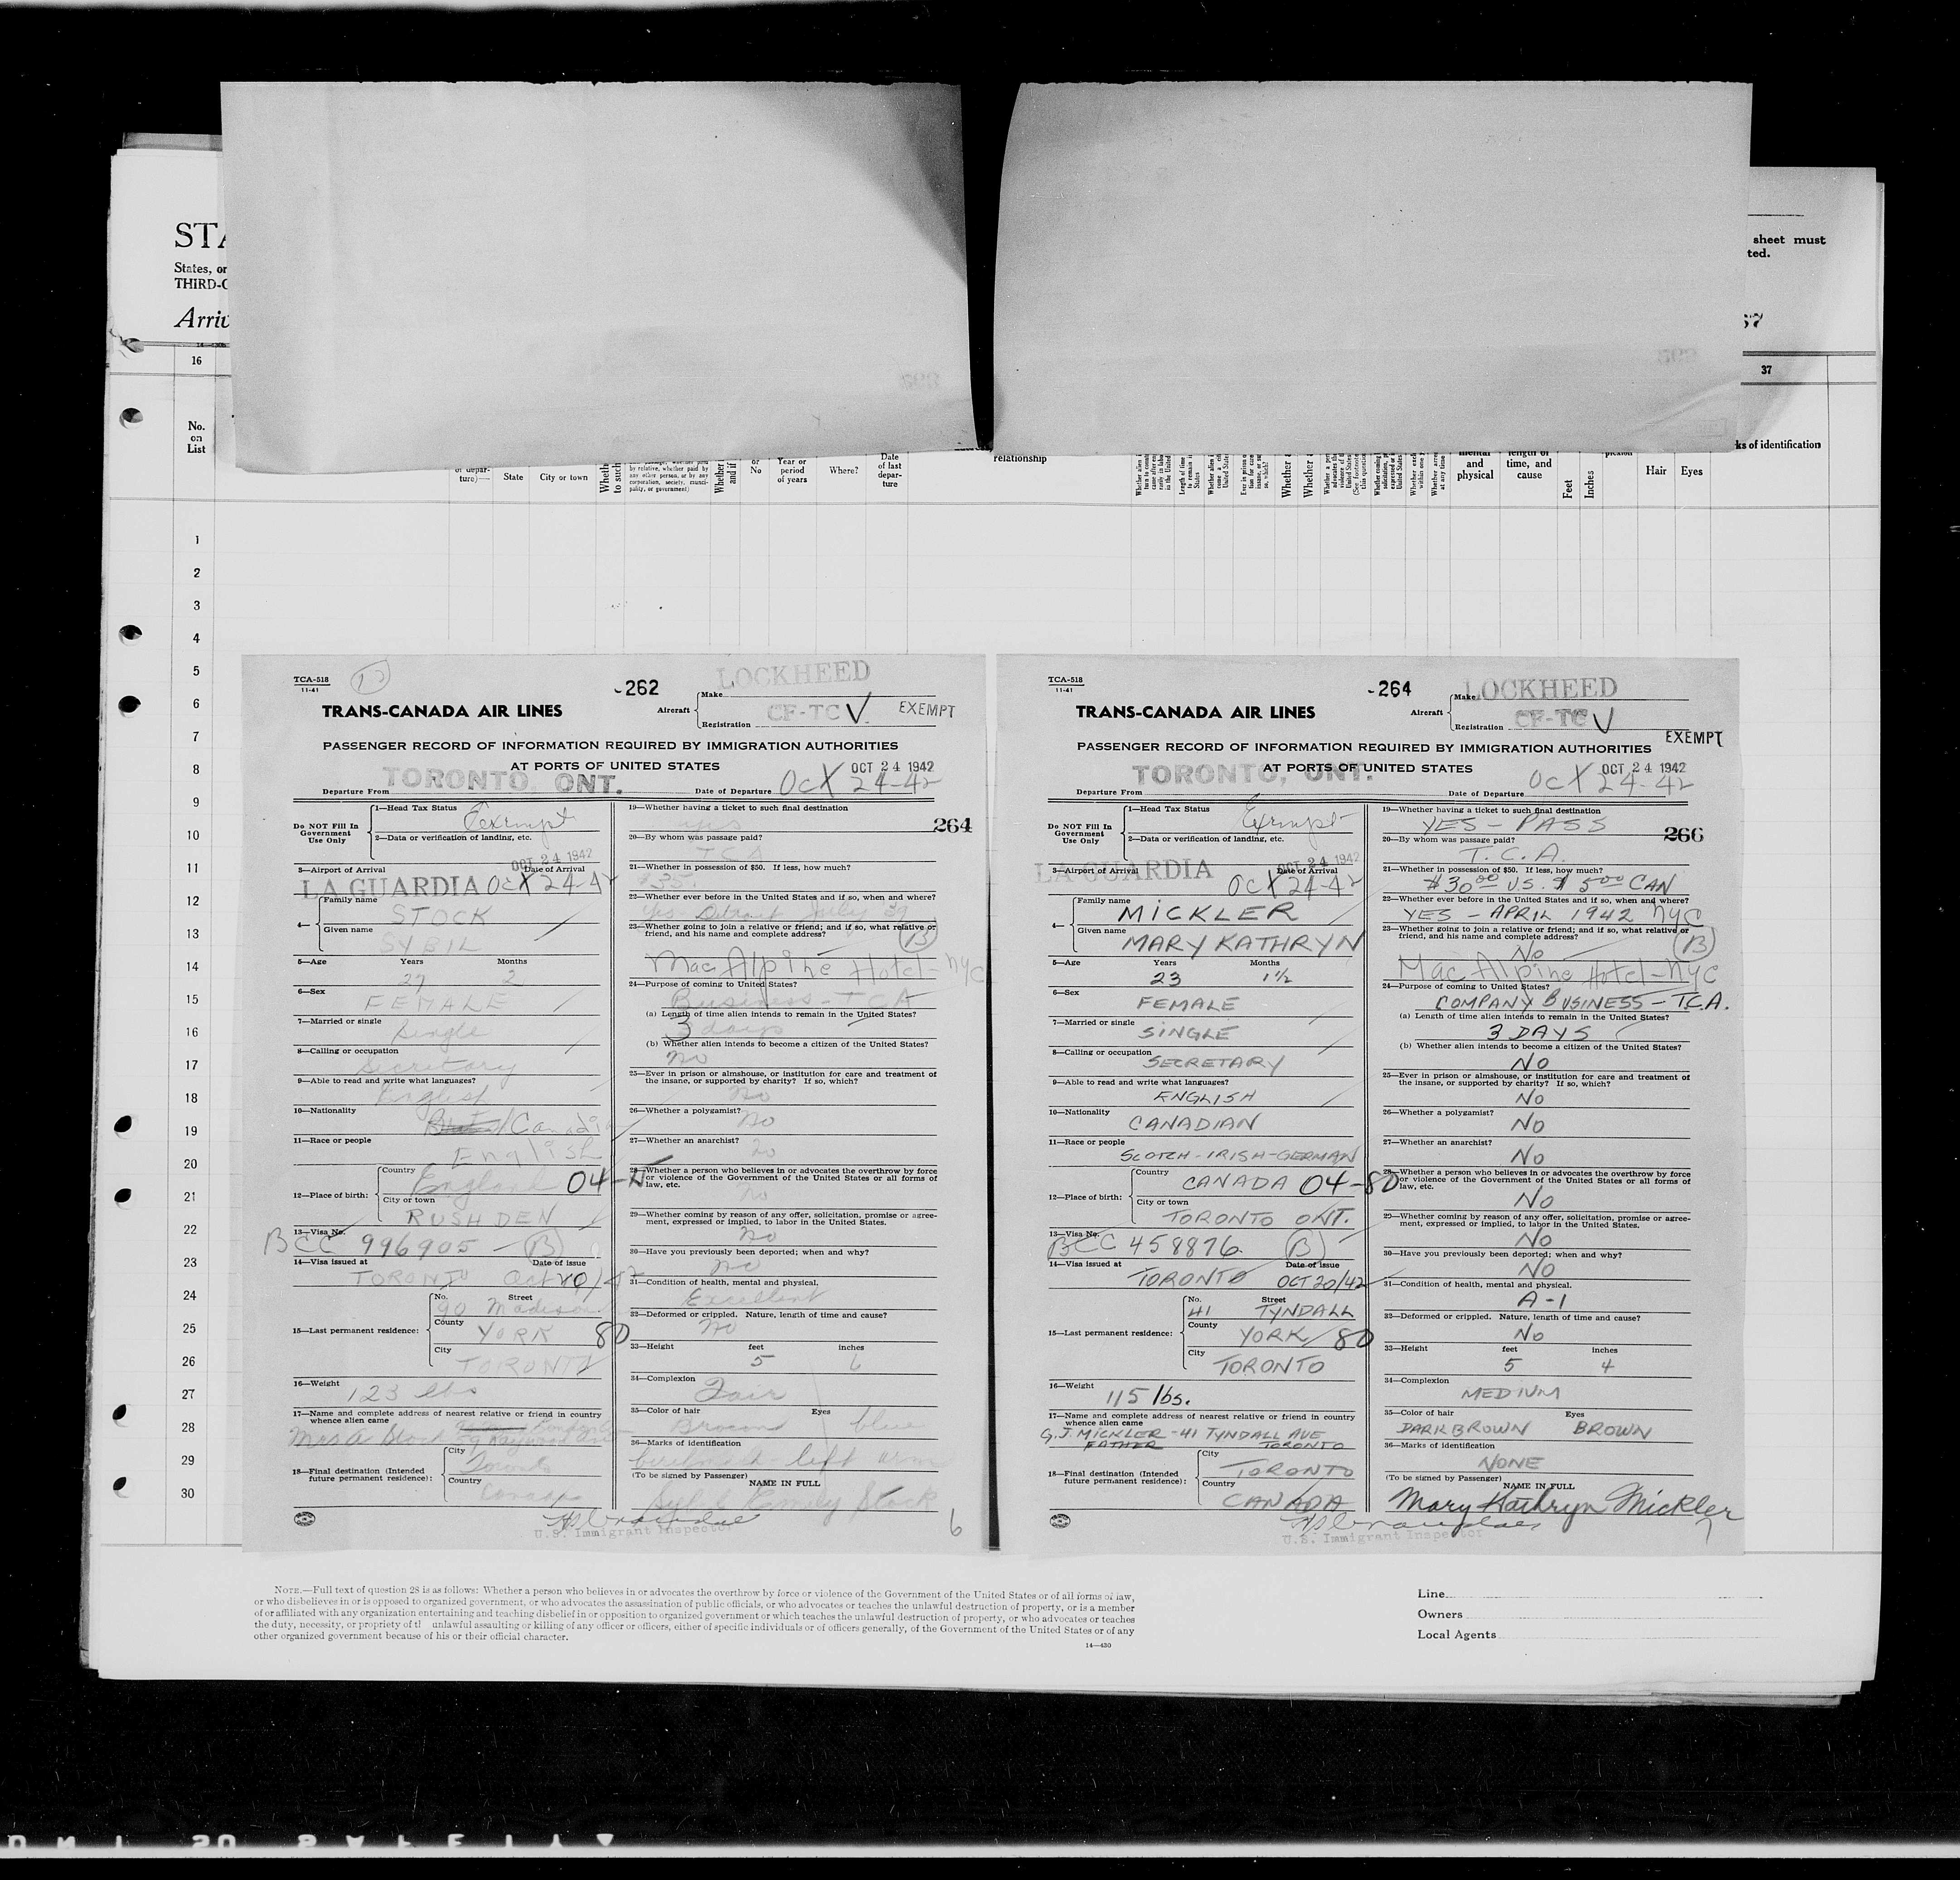 STA
States, or
THIRD-C
Arriv
sheet must
ted.
16
37
No.
on
List
ks of identification
of depar-
ture)—
State
City or town
by relative, whether paid by
any other person, or by any
corporation, society, munici-
pality, or government)
or
No
Year or
period
of years
Where?
Date
of last
depar-
ture
relationship
mental
and
physical
length of
time, and
cause
Feet
Inches
Hair
Eyes
1
2
3
4
5
6
7
8
9
10
11
12
13
14
15
16
17
18
19
20
21
22
23
24
25
26
27
28
29
30
TCA-518
11-41
-262
LOCKHEED
TRANS-CANADA AIR LINES
Aircraft
Make
Registration CF-TC V
EXEMPT
PASSENGER RECORD OF INFORMATION REQUIRED BY IMMIGRATION AUTHORITIES
AT PORTS OF UNITED STATES
OCT 24 1942
Departure From TORONTO, ONT.
Date of Departure Oct 24-42
264
Do NOT Fill In
Government
Use Only
1—Head Tax Status Exempt
2—Data or verification of landing, etc.
OCT 24 1942
3—Airport of Arrival LA GUARDIA
Date of Arrival Oct 24-42
4—
Family name STOCK
Given name SYBIL
5—Age Years 27 Months 2
6—Sex FEMALE
7—Married or single Single
8—Calling or occupation Secretary
9—Able to read and write what languages? English
10—Nationality Canadian
11—Race or people English
12—Place of birth: Country England 04-
City or town RUSHDEN
13—Visa No. BCC 996905 — B
14—Visa issued at TORONTO Date of issue Oct 20/42
15—Last permanent residence: No. 90 Street Madison
County YORK 80
City TORONTO
16—Weight 123 lbs
17—Name and complete address of nearest relative or friend in country
whence alien came
Mrs A Stock
18—Final destination (Intended
future permanent residence):
City Toronto
Country Canada
U.S. Immigrant Inspector
19—Whether having a ticket to such final destination
yes
20—By whom was passage paid?
TCA
21—Whether in possession of $50. If less, how much?
$35.
22—Whether ever before in the United States and if so, when and where?
Yes Detroit July 39
23—Whether going to join a relative or friend; and if so, what relative or
friend, and his name and complete address? B
Mac Alpine Hotel - NYC
24—Purpose of coming to United States?
Business - TCA
(a) Length of time alien intends to remain in the United States?
3 days
(b) Whether alien intends to become a citizen of the United States?
No
25—Ever in prison or almshouse, or institution for care and treatment of
the insane, or supported by charity? If so, which?
No
26—Whether a polygamist? No
27—Whether an anarchist?
No
28—Whether a person who believes in or advocates the overthrow by force
or violence of the Government of the United States or all forms of
law, etc.
No
29—Whether coming by reason of any offer, solicitation, promise or agree-
ment, expressed or implied, to labor in the United States.
No
30—Have you previously been deported; when and why?
No
31—Condition of health, mental and physical.
Excellent
32—Deformed or crippled. Nature, length of time and cause?
No
33—Height feet 5 inches 6
34—Complexion
Fair
35—Color of hair Brown Eyes blue
36—Marks of identification
birthmark - left arm
(To be signed by Passenger) NAME IN FULL
Stock
6
TCA-518
11-41
-264
LOCKHEED
TRANS-CANADA AIR LINES
Aircraft
Make
Registration CF-TC V
EXEMPT
PASSENGER RECORD OF INFORMATION REQUIRED BY IMMIGRATION AUTHORITIES
AT PORTS OF UNITED STATES
OCT 24 1942
Departure From TORONTO, ONT.
Date of Departure Oct 24-42
266
Do NOT Fill In
Government
Use Only
1—Head Tax Status Exempt
2—Data or verification of landing, etc.
OCT 24 1942
3—Airport of Arrival LA GUARDIA
Date of Arrival Oct 24-42
4—
Family name MICKLER
Given name MARY KATHRYN
5—Age Years 23 Months 1½
6—Sex FEMALE
7—Married or single SINGLE
8—Calling or occupation SECRETARY
9—Able to read and write what languages? ENGLISH
10—Nationality CANADIAN
11—Race or people SCOTCH-IRISH-GERMAN
12—Place of birth: Country CANADA 04-80
City or town TORONTO ONT.
13—Visa No. BCC 458876. B
14—Visa issued at TORONTO Date of issue OCT 20/42
15—Last permanent residence: No. 41 Street TYNDALL
County YORK 80
City TORONTO
16—Weight 115 lbs.
17—Name and complete address of nearest relative or friend in country
whence alien came
G.J. MICKLER - 41 TYNDALL AVE
FATHER TORONTO
18—Final destination (Intended
future permanent residence):
City TORONTO
Country CANADA
U.S. Immigrant Inspector
19—Whether having a ticket to such final destination
YES - PASS
20—By whom was passage paid?
T.C.A.
21—Whether in possession of $50. If less, how much?
$30.00 U.S. $ 5.00 CAN
22—Whether ever before in the United States and if so, when and where?
YES - APRIL 1942 NYC
23—Whether going to join a relative or friend; and if so, what relative or
friend, and his name and complete address? B
No
Mac Alpine Hotel - NYC
24—Purpose of coming to United States?
COMPANY BUSINESS - T.C.A.
(a) Length of time alien intends to remain in the United States?
3 DAYS
(b) Whether alien intends to become a citizen of the United States?
No
25—Ever in prison or almshouse, or institution for care and treatment of
the insane, or supported by charity? If so, which?
No
26—Whether a polygamist?
No
27—Whether an anarchist?
No
28—Whether a person who believes in or advocates the overthrow by force
or violence of the Government of the United States or all forms of
law, etc.
No
29—Whether coming by reason of any offer, solicitation, promise or agree-
ment, expressed or implied, to labor in the United States.
No
30—Have you previously been deported; when and why?
No
31—Condition of health, mental and physical.
A-1
32—Deformed or crippled. Nature, length of time and cause?
No
33—Height feet 5 inches 4
34—Complexion
MEDIUM
35—Color of hair DARK BROWN Eyes BROWN
36—Marks of identification
NONE
(To be signed by Passenger) NAME IN FULL
Mary Kathryn Mickler
7
NOTE.—Full text of question 28 is as follows: Whether a person who believes in or advocates the overthrow by force or violence of the Government of the United States or of all forms of law,
or who disbelieves in or is opposed to organized government, or who advocates the assassination of public officials, or who advocates or teaches the unlawful destruction of property, or is a member
of or affiliated with any organization entertaining and teaching disbelief in or opposition to organized government or which teaches the unlawful destruction of property, or who advocates or teaches
the duty, necessity, or propriety of th unlawful assaulting or killing of any officer or officers, either of specific individuals or of officers generally, of the Government of the United States or of any
other organized government because of his or their official character.
14—430
Line
Owners
Local Agents